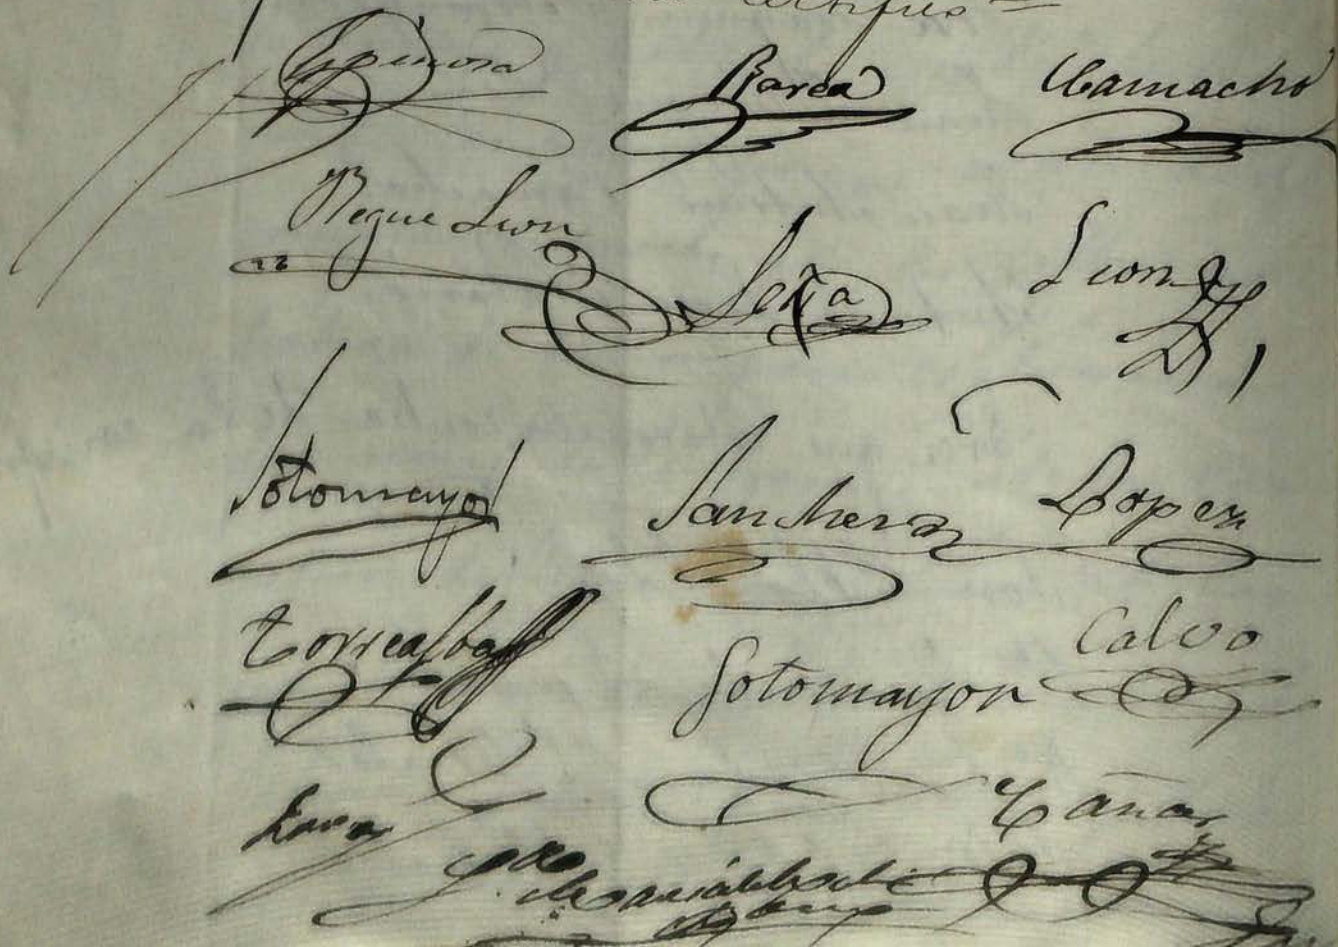 certifico =
Espinosa Barea Camacho
Reque Leon Seña Leon
Sotomayor Sanchez Lopez
Torrealba Sotomayor Calvo
Luna Cañas